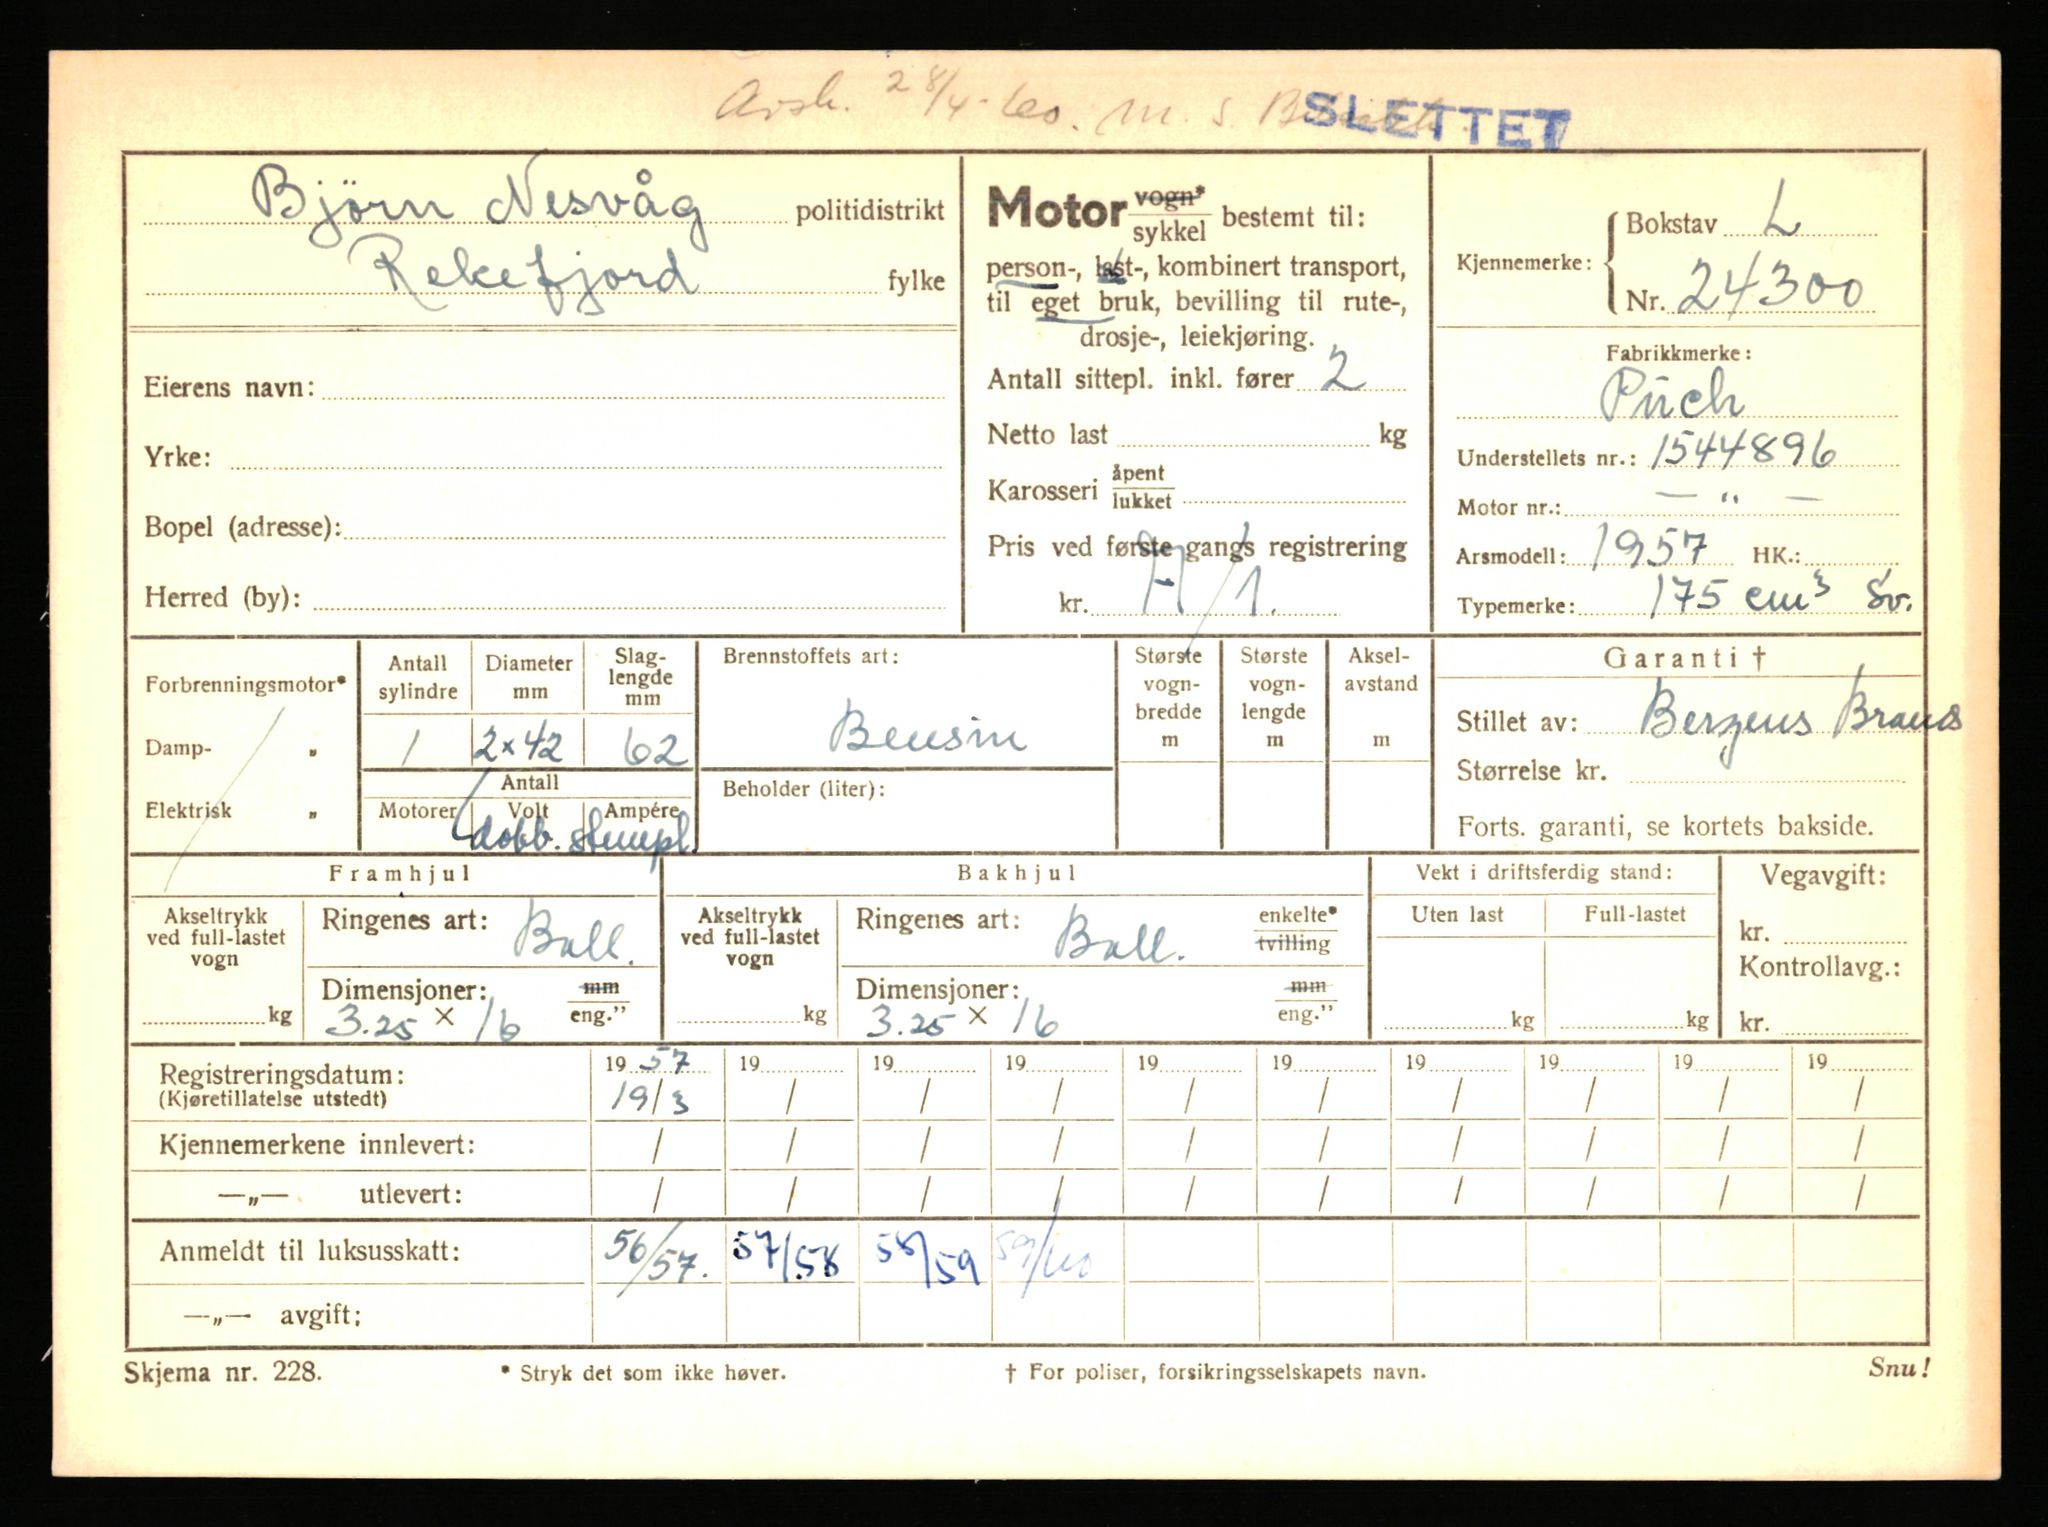 Avsk. 28/4-60. M. S.
SLETTET
Björn Nesvåg politidistrikt
Rekefjord fylke
Eierens navn:
Yrke:
Bopel (adresse):
Herred (by):
Motor vogn* sykkel bestemt til:
person-, last-, kombinert transport,
til eget bruk, bevilling til rute-,
drosje-, leiekjøring.
Antall sittepl. inkl. fører 2
Netto last kg
Karosseri åpent lukket
Pris ved første gangs registrering
kr.
Kjennemerke: Bokstav L
Nr. 24300
Fabrikkmerke:
Püch
Understellets nr.: 1544896
Motor nr.: — " —
Arsmodell: 1957 HK.:
Typemerke: 175 cm³ Sv.
Forbrenningsmotor*
Damp- "
Elektrisk "
Antall sylindre
Diameter mm
Slag- lengde mm
1 2×42 62
Antall
Motorer Volt Ampére
dobb. stempl.
Brennstoffets art:
Bensin
Beholder (liter):
Største vogn- bredde m
Største vogn- lengde m
Aksel- avstand m
Garanti †
Stillet av: Bergens Brand
Størrelse kr.
Forts. garanti, se kortets bakside.
Framhjul
Akseltrykk
ved full-lastet
vogn
kg
Ringenes art: Ball.
Dimensjoner: mm
3.25 × 16 eng."
Bakhjul
Akseltrykk
ved full-lastet
vogn
kg
Ringenes art: Ball. enkelte* tvilling
Dimensjoner: mm
3.25 × 16 eng."
Vekt i driftsferdig stand:
Uten last Full-lastet
kg kg
Vegavgift:
kr.
Kontrollavg.:
kr.
Registreringsdatum: 19 57 19 19 19 19 19 19 19 19 19
(Kjøretillatelse utstedt) 19/3 / / / / / / / / /
Kjennemerkene innlevert: / / / / / / / / / /
—„— utlevert: / / / / / / / / / /
Anmeldt til luksusskatt: 56/57. 57/58 58/59 59/60
—„— avgift:
Skjema nr. 228. * Stryk det som ikke høver. † For poliser, forsikringsselskapets navn. Snu!